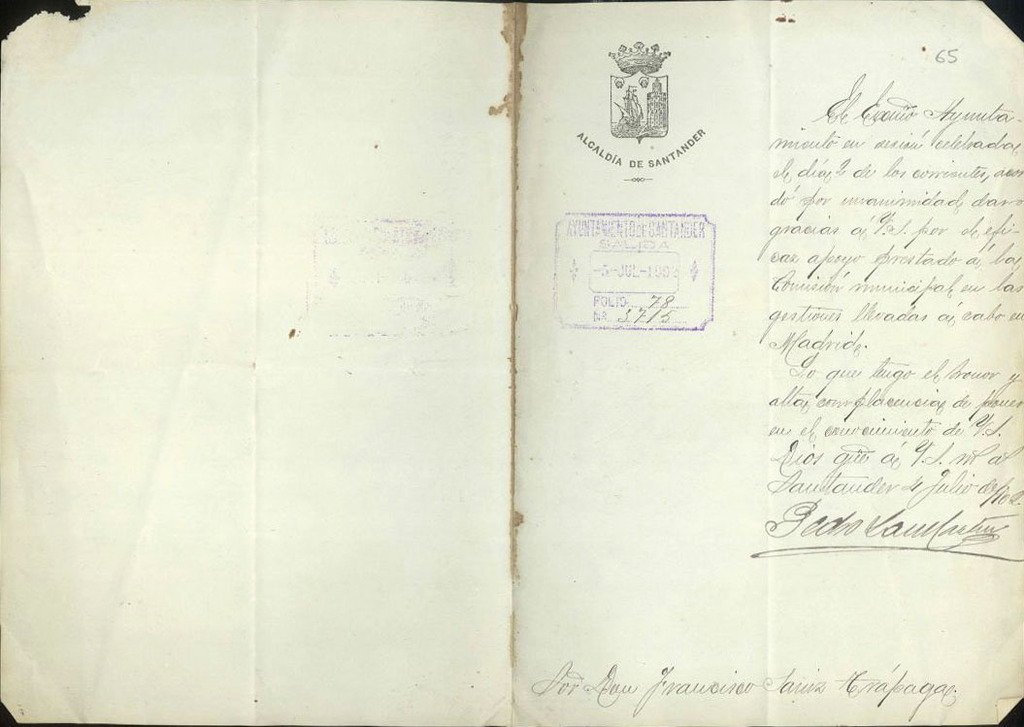 65
ALCALDÍA DE SANTANDER
AYUNTAMIENTO DE SANTANDER
SALIDA
-5-JUL-190
FOLIO 78
NR. 3715
El Excmo Ayunta-
miento en sesión celebrada
el día 2 de los corrientes, acor
dó por unanimidad dar
gracias á V.S. por el efi-
caz apoyo prestado á la
Comisión municipal en las
gestiones llevadas á cabo en
Madrid.
Lo que tengo el honor y
alta complacencia de poner
en el conocimiento de V.S.
Dios gue á V.S. m a
Santander 4 Julio de
Pedro San Martín
Sor Don Francisco Sainz Trápaga.